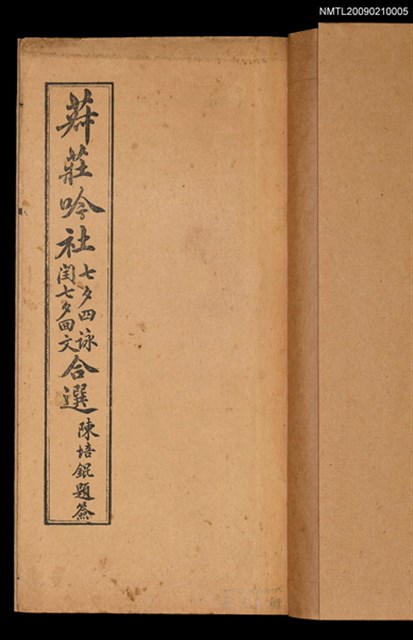 NMTL20090210005
菽莊吟社
七夕四詠
閏七夕回文
合選
陳培錕題簽